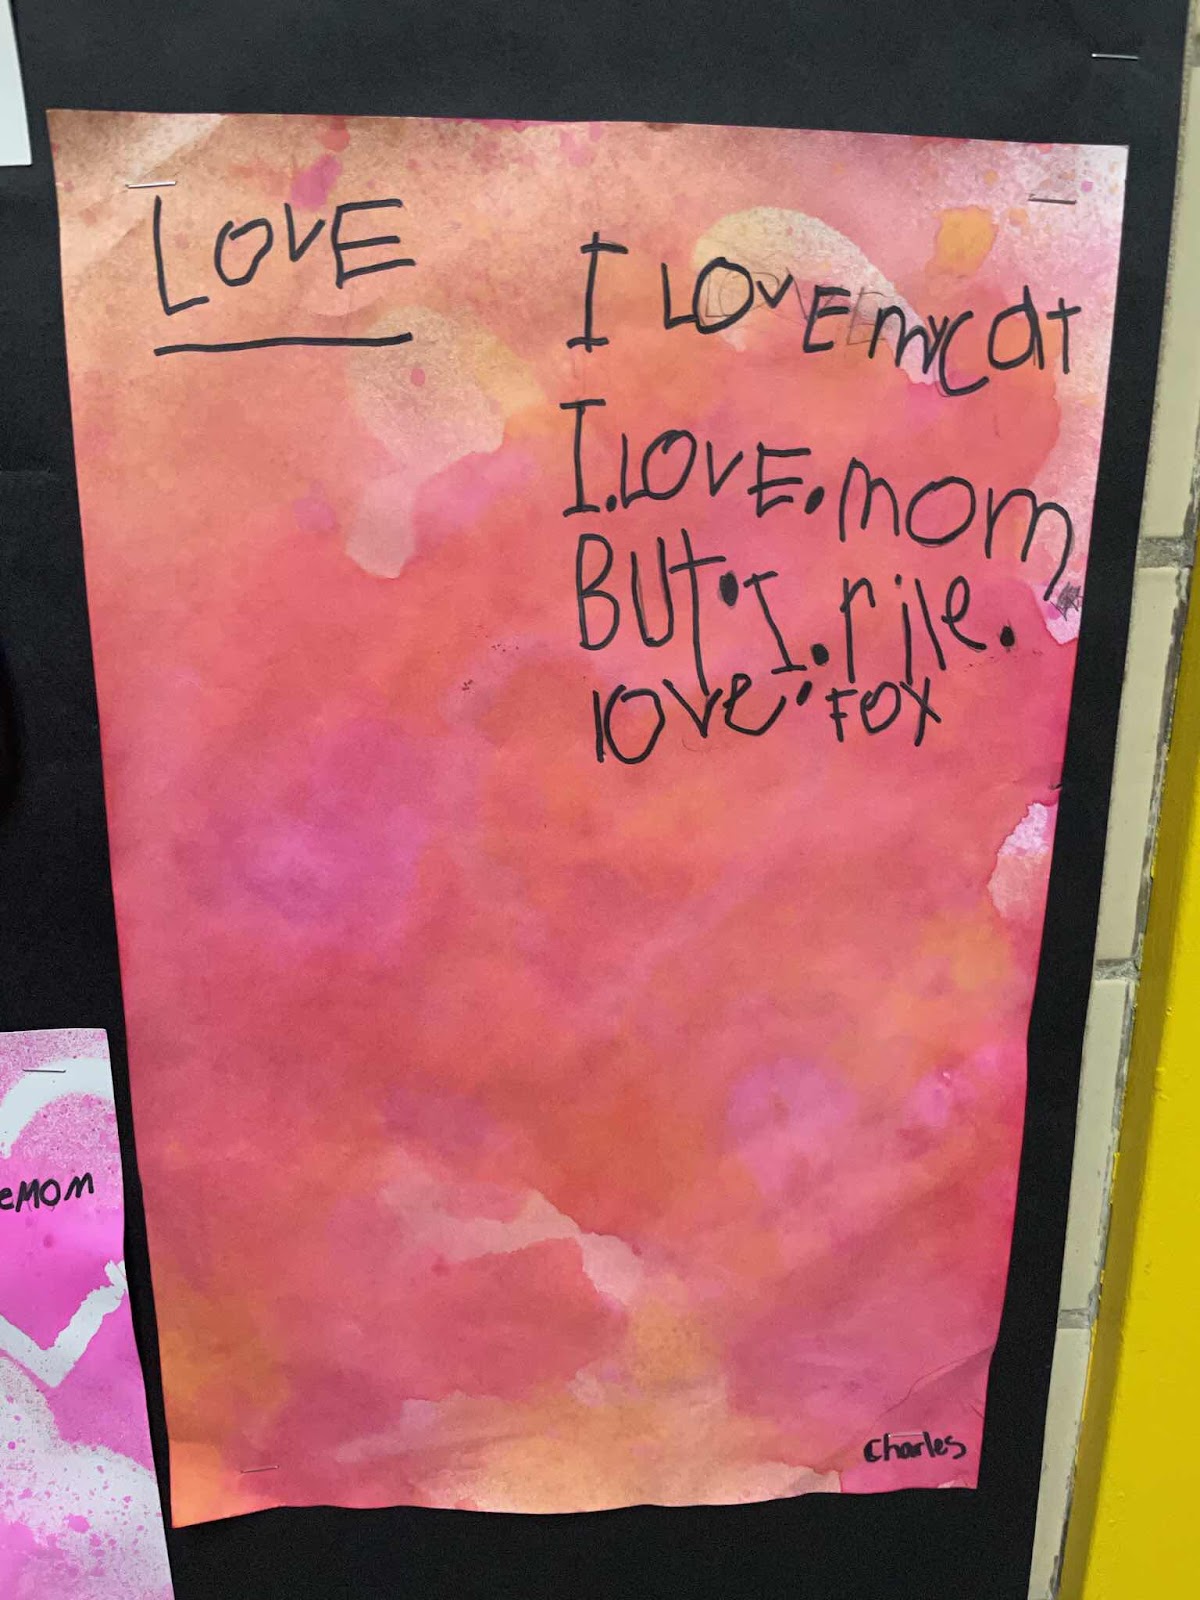 LOVE
I LOVE my cat
I.LOVE.mom
BUT.I.rile.
love.FOX
Charles
eMOM